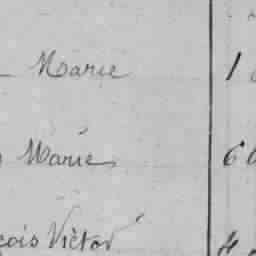 Marie 1
Marie 6
çois Victor 4